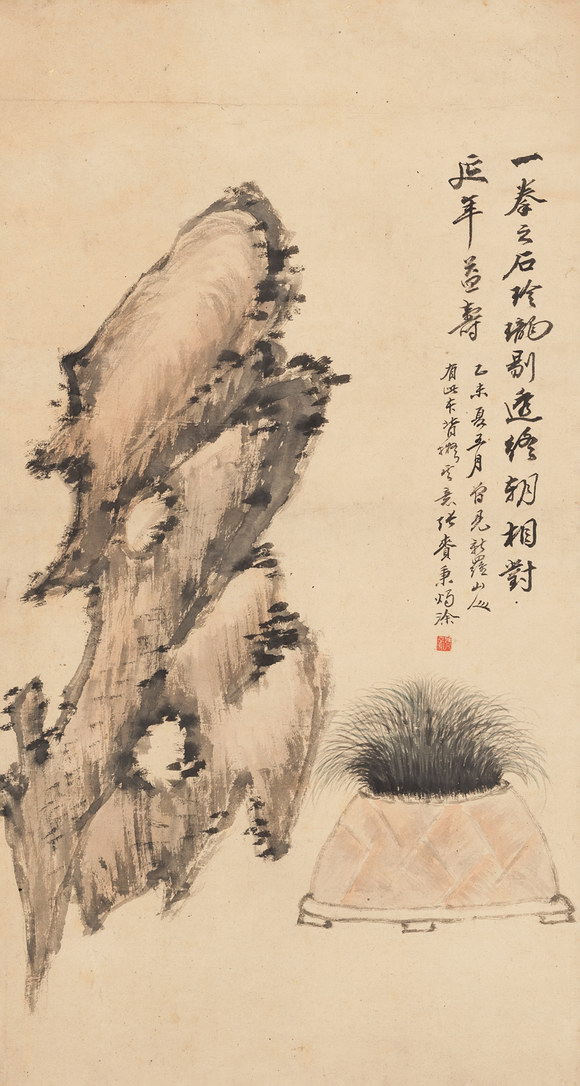 一拳之石玲瓏剔透終朝相對
延年益壽
乙未夏五月曾見新羅山人
有此本背擬其意張賚秉燭塗